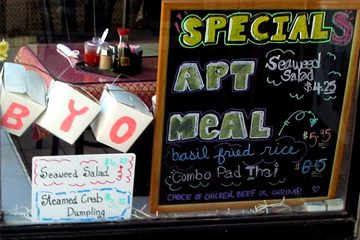 SPECIALS
APT
MEAL
Seaweed
Salad
$4.25
basil fried rice
Combo Pad Thai
CHOICE OF CHICKEN, BEEF OR SHRIMP
BYO
Seaweed Salad
Steamed Crab
Dumpling